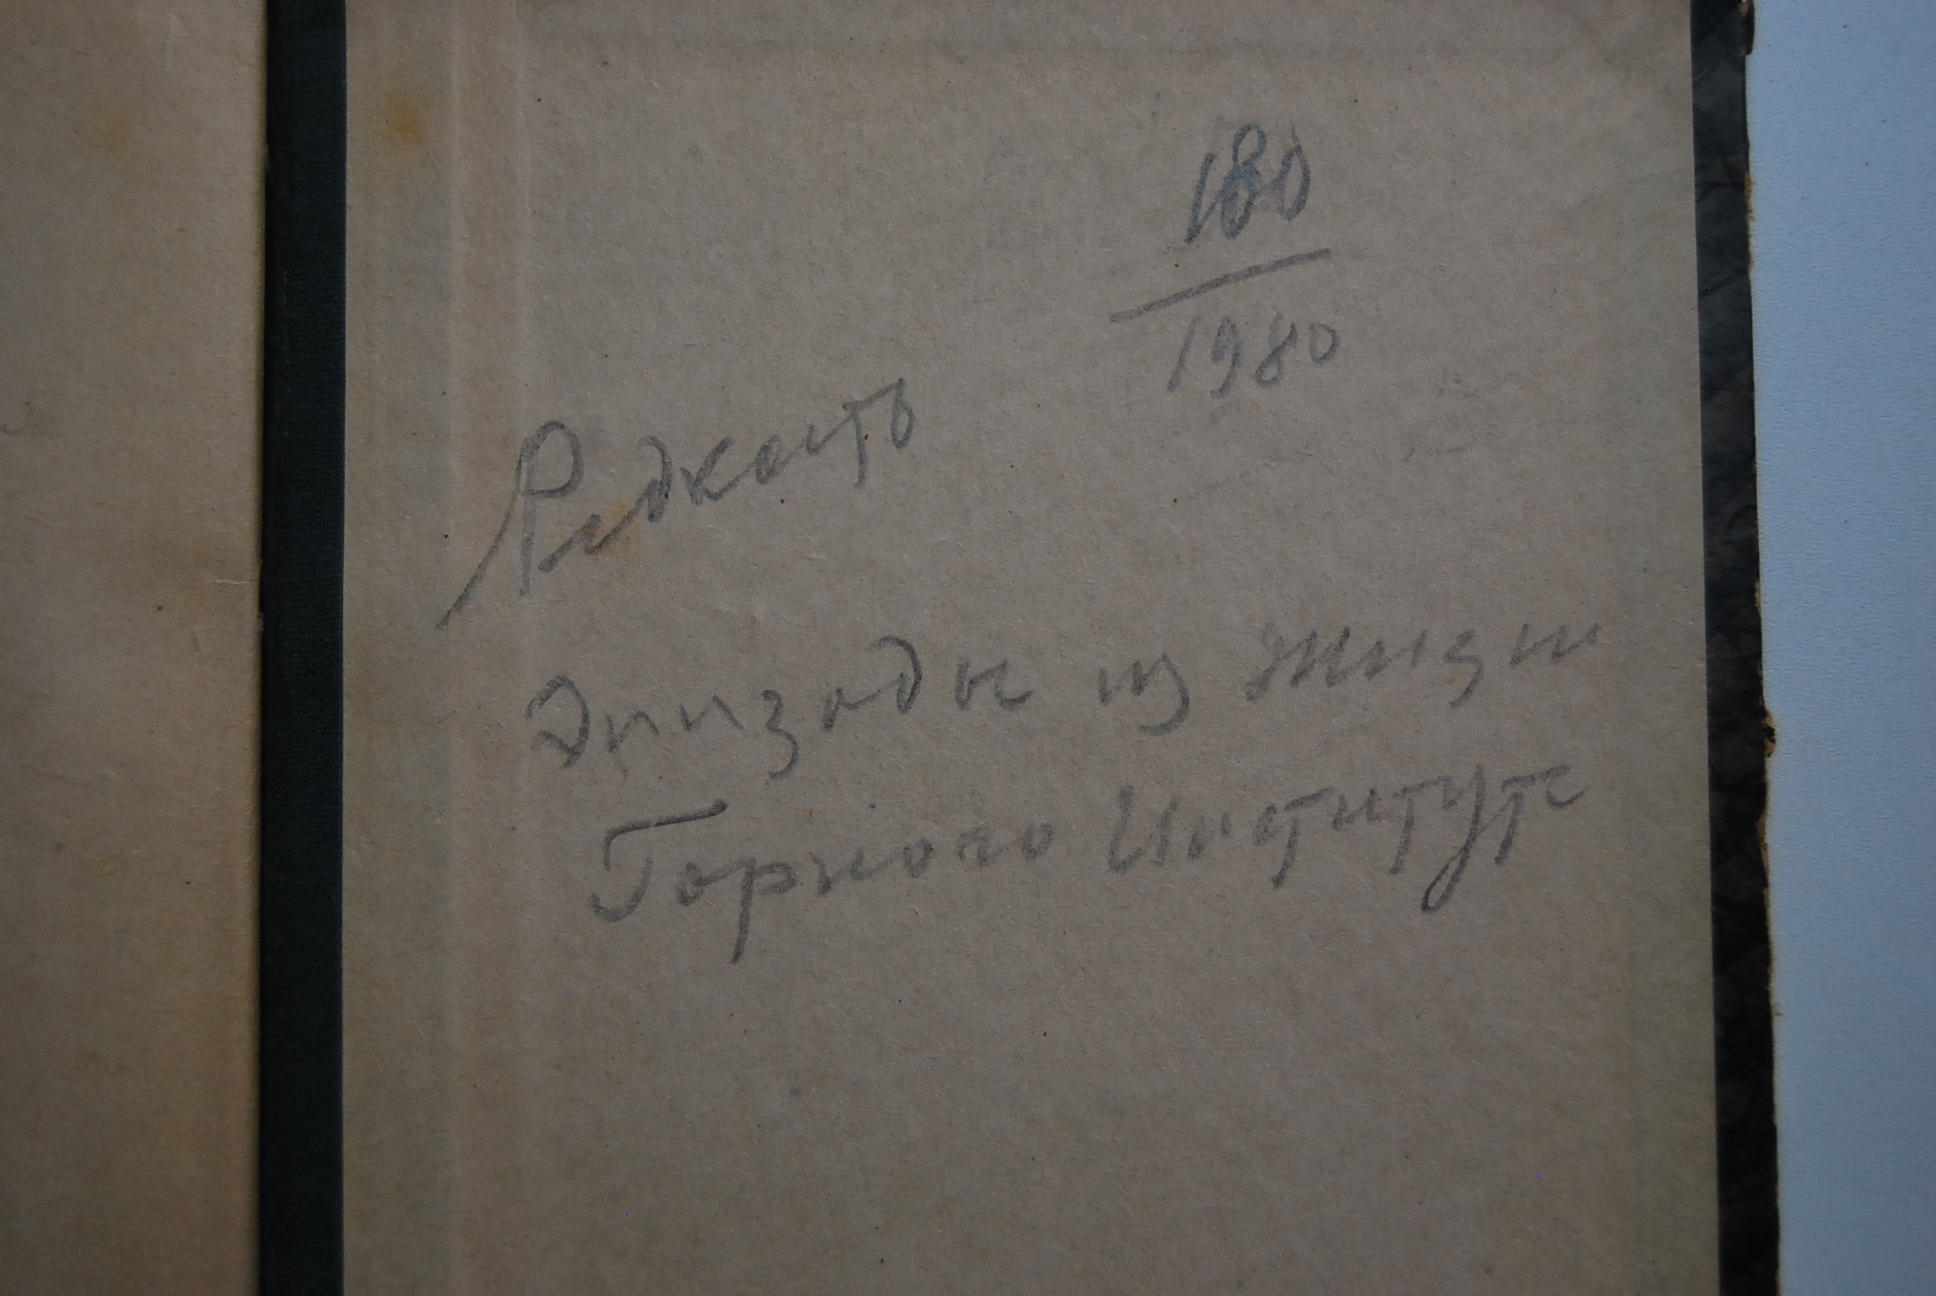 180
1980
Редкость
Эпизоды из жизни
Горного Института